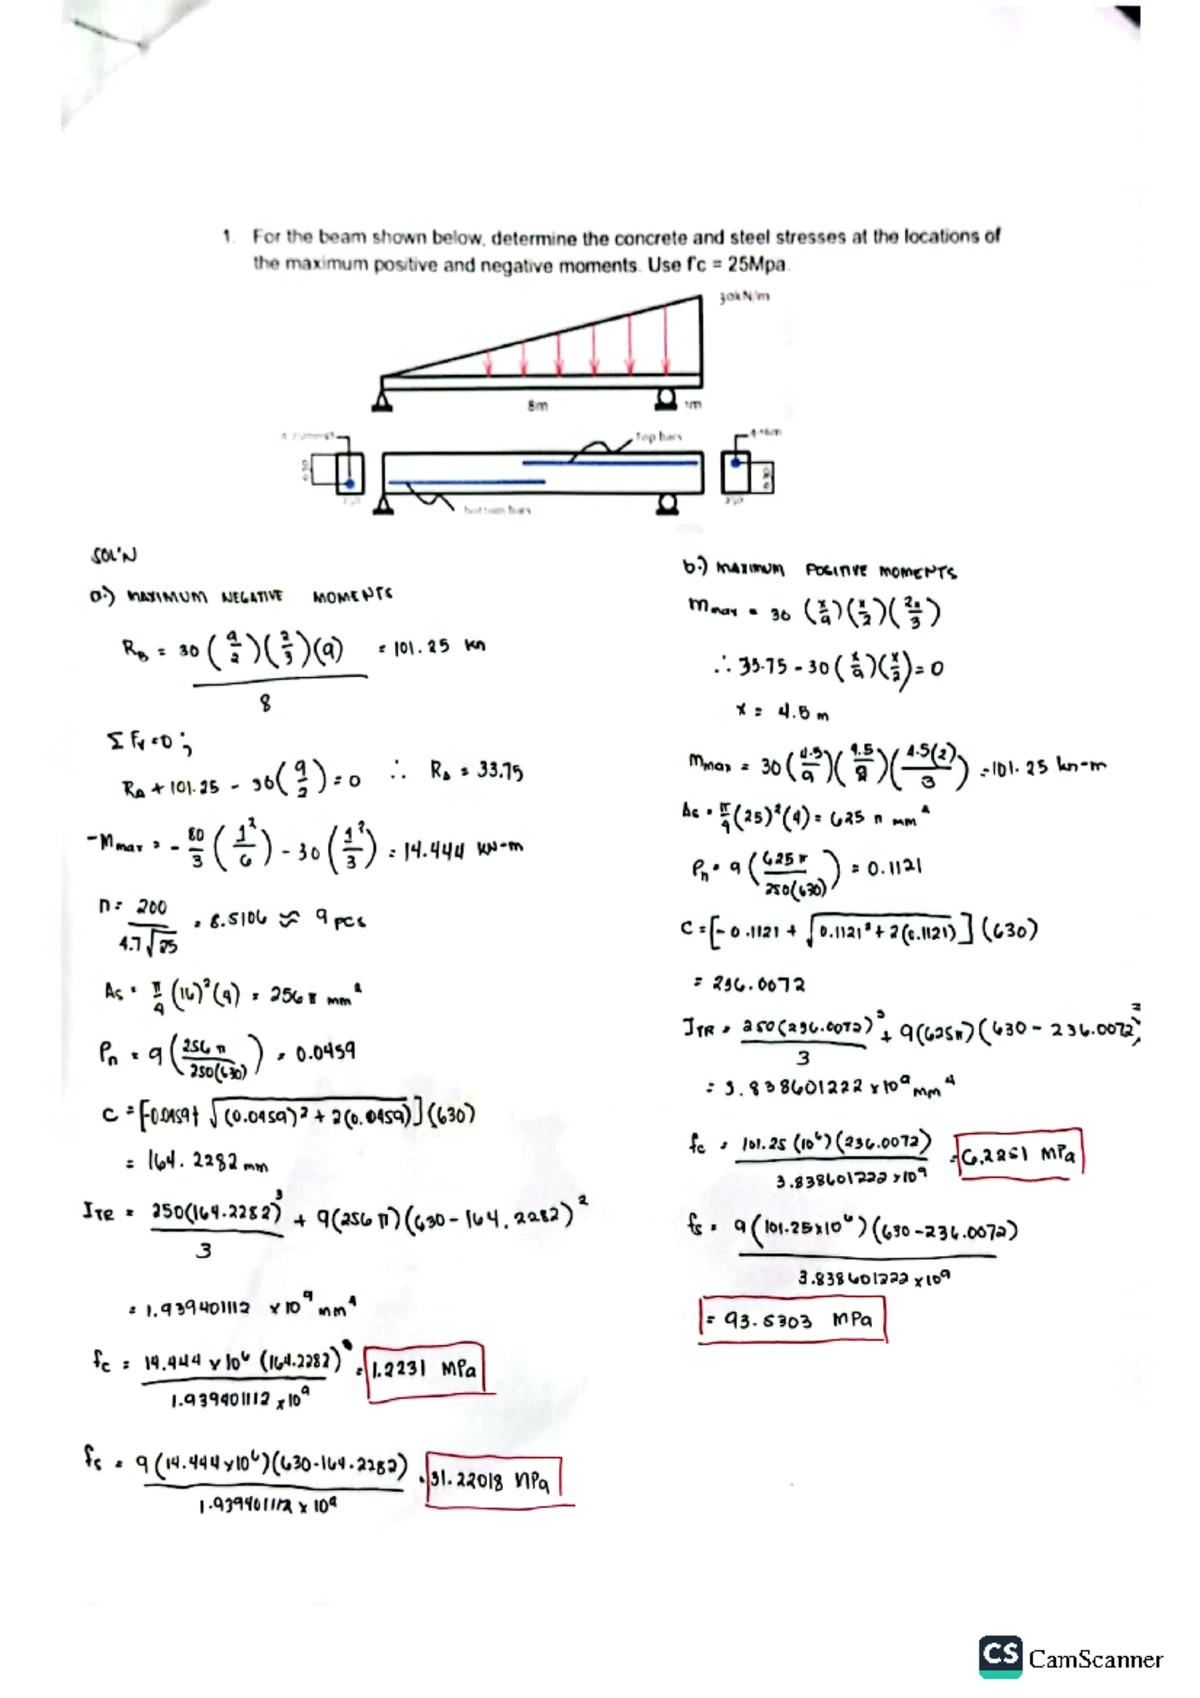 1. For the beam shown below, determine the concrete and steel stresses at the locations of
the maximum positive and negative moments. Use f'c = 25Mpa.
30kN/m
8m
1m
Top bars
bottom bars
SOL'N
a.) MAXIMUM NEGATIVE MOMENTS
R_B = 30 (9/2)(2/3)(9) / 8 = 101.25 kn
Σ Fv = 0 ;
R_A + 101.25 - 30(9/2) = 0 ∴ R_A = 33.75
-M max = - 80/3 (1²/6) - 30 (1²/3) = 14.444 KN-m
n = 200 / 4.7√25 = 8.5106 ≈ 9 pcs
As = π/4 (16)²(4) = 256 π mm²
ρn = 9 (256 π / 250(630)) = 0.0459
C = [-0.0459 + √(0.0459)² + 2(0.0459)] (630)
= 164.2282 mm
I_TR = 250(164.2282)³ / 3 + 9(256 π)(630 - 164.2282)²
= 1.939401112 x 10⁹ mm⁴
fc = 14.444 x 10⁶ (164.2282) / 1.939401112 x 10⁹ = 1.2231 MPa
fs = 9 (14.444 x 10⁶)(630-164.2282) / 1.939401112 x 10⁹ = 31.22018 MPa
b.) MAXIMUM POSITIVE MOMENTS
M max = 30 (x/9)(x/2)(2x/3)
∴ 33.75 - 30 (x/9)(x/2) = 0
x = 4.5 m
M max = 30 (4.5/9)(4.5/2)(4.5(2)/3) = 101.25 kn-m
As = π/4 (25)²(4) = 625 π mm²
ρn = 9 (625 π / 250(630)) = 0.1121
C = [-0.1121 + √0.1121² + 2(0.1121)] (630)
= 236.0072
I_TR = 250(236.0072)³ / 3 + 9(625π)(630 - 236.0072)²
= 3.838601222 x 10⁹ mm⁴
fc = 101.25 (10⁶)(236.0072) / 3.838601222 x 10⁹ = 6.2251 MPa
fs = 9 (101.25x10⁶)(630-236.0072) / 3.838601222 x 10⁹
= 93.5303 MPa
CS CamScanner